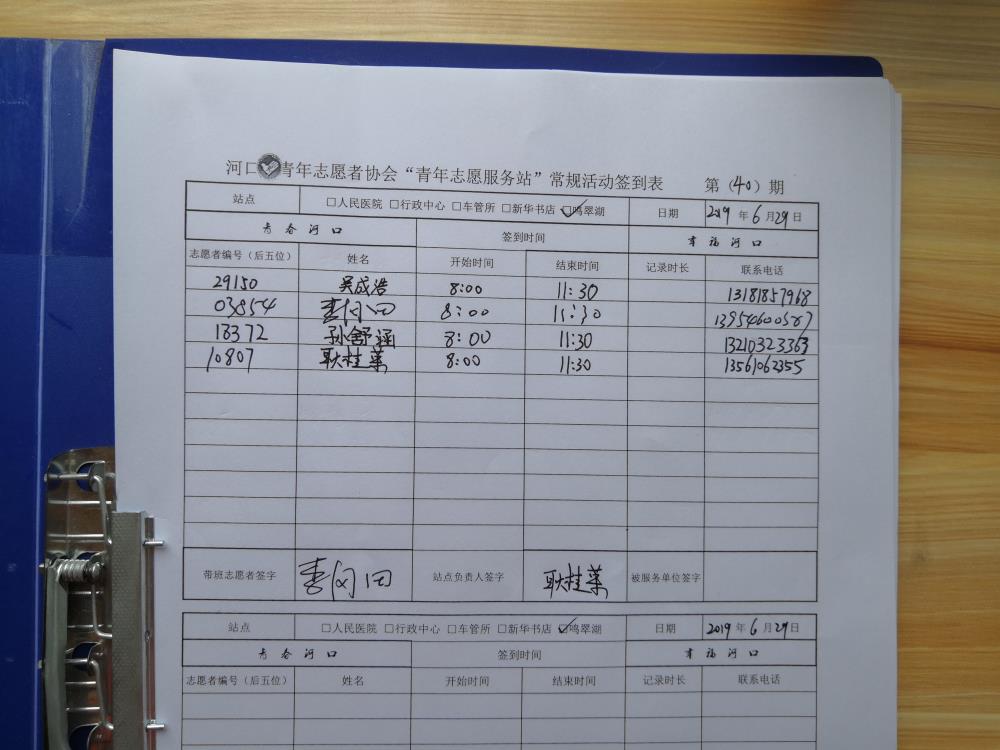 河口青年志愿者协会“青年志愿服务站”常规活动签到表 第（40）期
站点 □人民医院 □行政中心 □车管所 □新华书店 ☑鸣翠湖 日期 2019年6月29日
青春河口 签到时间 幸福河口
志愿者编号（后五位） 姓名 开始时间 结束时间 记录时长 联系电话
29150 吴成浩 8:00 11:30 13181857968
03854 8:00 11:30 13954600587
18372 孙舒涵 8:00 11:30 13210323363
10807 耿桂莱 8:00 11:30 13561062355
带班志愿者签字 站点负责人签字 耿桂莱 被服务单位签字
站点 □人民医院 □行政中心 □车管所 □新华书店 ☑鸣翠湖 日期 2019年6月29日
青春河口 签到时间 幸福河口
志愿者编号（后五位） 姓名 开始时间 结束时间 记录时长 联系电话